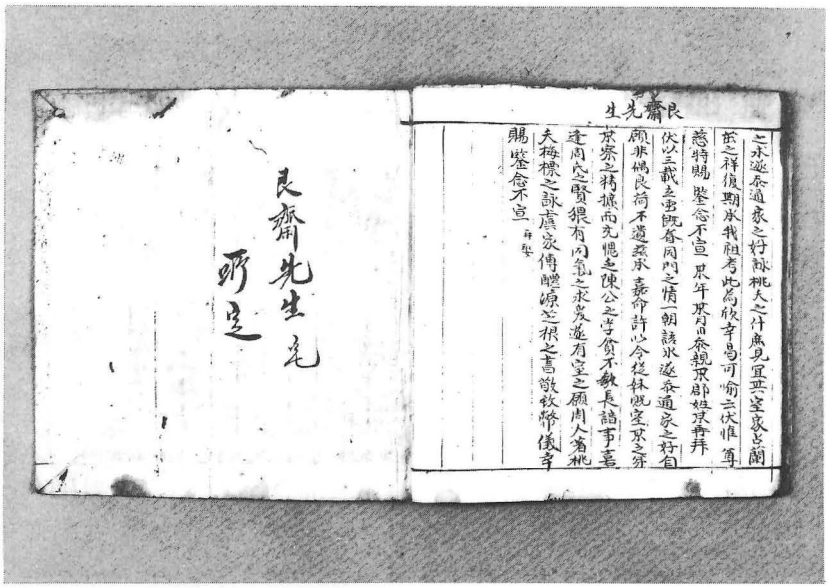 艮齋先生
之求遂忝通家之好詠桃夭之什庶見宜其室家占蘭
茁之祥復期承我祖考此爲欣幸曷可喻云伏惟尊
慈特賜鑒念不宣 某年某月日忝親某郡姓某再拜
伏以三載立雪旣眷同門之情一朝議氷遂忝通家之好自
顧非偶良荷不遺玆承嘉命許以令從妹貺室某之
某之精據而尤愧乏陳公之学貧不長諧事喜
逢周氏之賢猥有同氣之求爰遂有室之願周人省桃
夭梅標之詠虞家傳醴源芝根之書敬致幣儀幸
賜鑒念不宣 再娶
艮齋先生宅
所定